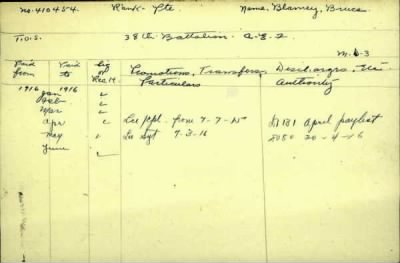 No. 410454. Rank- Pte Name, Blamey, Bruce.
T.O.S. 38th. Battalion. C.E.F.
M-6-3
Paid from Paid to Sig or Rec'd. Promotions, Transfers, Discharges, Etc.
Particulars Authority
1916 1916
Jan ✓
Feb ✓
Mar ✓
Apr ✓ L/Cpl. from 7-7-15 April paylist
May ✓ Sgt 7-3-16 20-4-16
June ✓